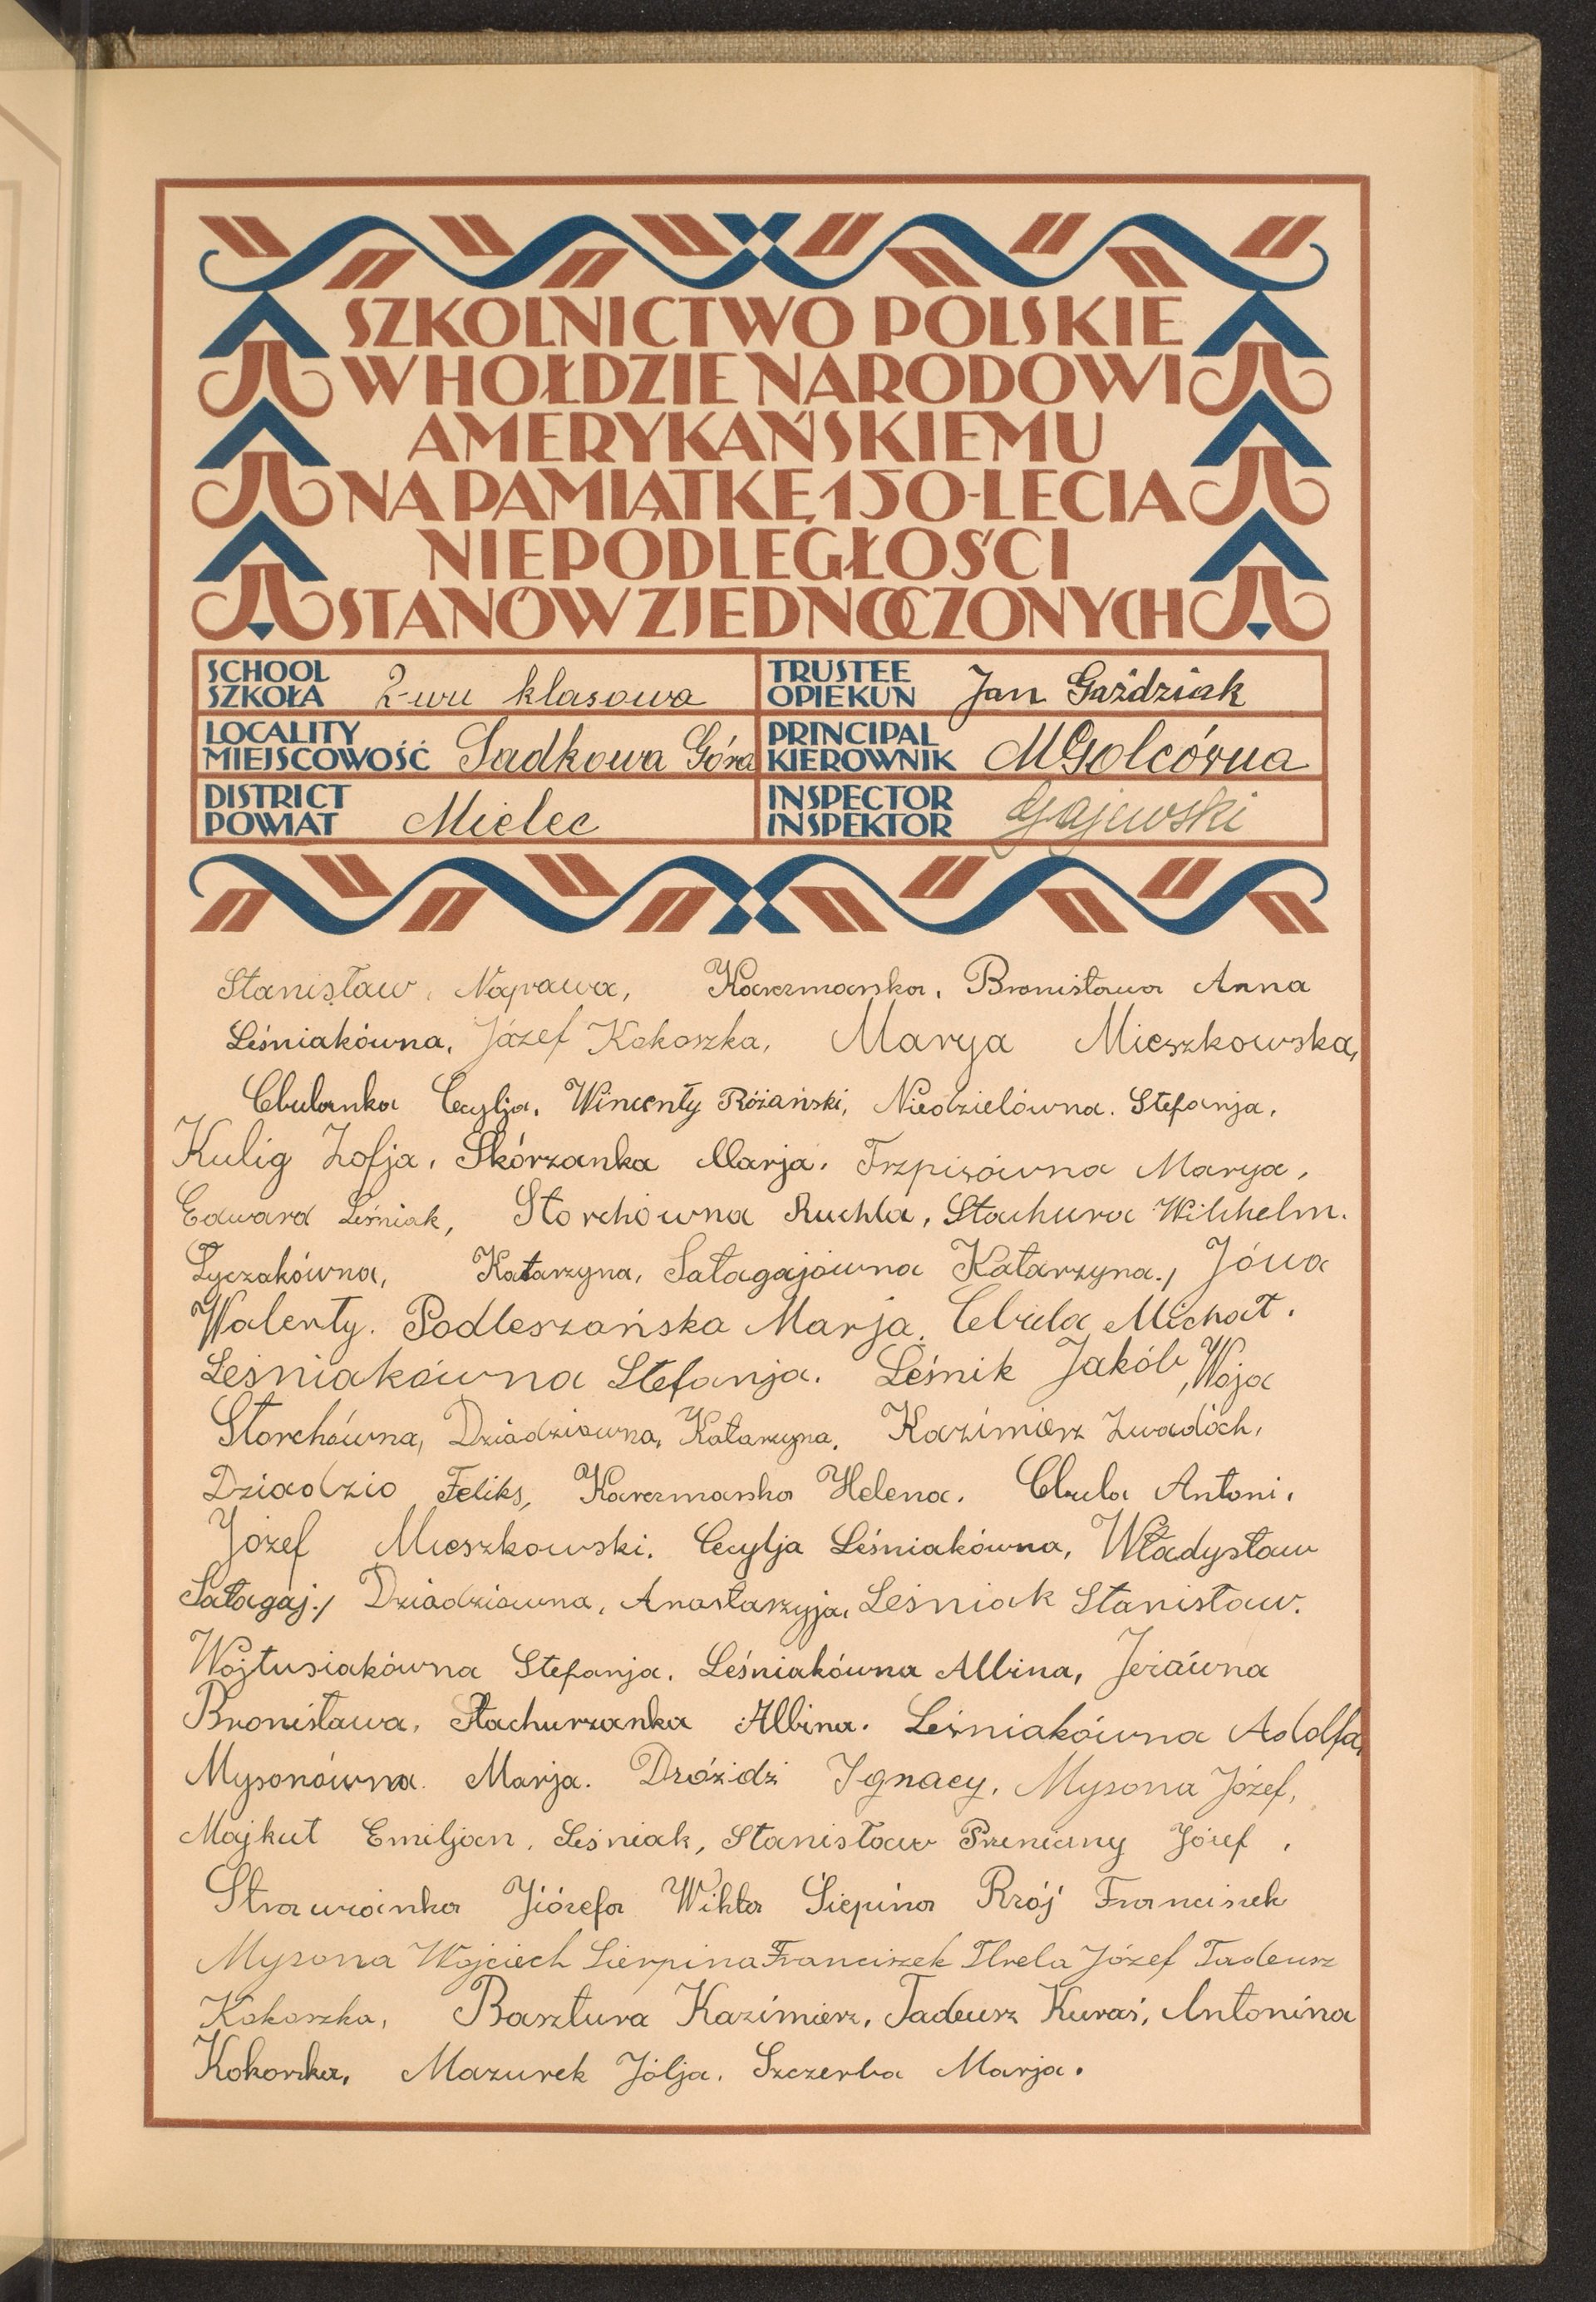 SZKOLNICTWO POLSKIE
W HOŁDZIE NARODOWI
AMERYKAŃSKIEMU
NA PAMIĄTKĘ 150-LECIA
NIEPODLEGŁOŚCI
STANÓW ZJEDNOCZONYCH
SCHOOL
SZKOŁA 2-wu klasowa
TRUSTEE
OPIEKUN Jan Gaździak
LOCALITY
MIEJSCOWOŚĆ Sadkowa Góra
PRINCIPAL
KIEROWNIK MGolcówna
DISTRICT
POWIAT Mielec
INSPECTOR
INSPEKTOR Gajewski
Stanisław, Naprawa, Karzmarska, Bronisława Anna
Leśniakówna, Józef Kokoszka, Marya Mieszkowska,
Cbulanka Cecylja, Wincenty Różański, Niedzielówna. Stefanja,
Kulig Zofja, Skórzanka Marja, Trzpisówna Marya,
Edward Leśniak, Storchówna Ruchla, Stachura Wilhhelm.
Łyczakówna, Katarzyna, Sałagajówna Katarzyna., Jówa
Walenty. Podleszańska Marja, Cbula Michał.
Leśniakówna Stefanja. Leśnik Jakób, Woja
Storchówna, Dziadziówna, Katarzyna, Kazimierz Zwadóch,
Dziadzio Feliks, Karzmarska Helena. Cbula Antoni.
Józef Mieszkowski. Cecylja Leśniakówna, Władysław
Sałagaj., Dziadziówna, Anastarzyja, Leśniak Stanisław.
Wojtusiakówna Stefanja, Leśniakówna Albina, Jeżówna
Bronisława, Stachurzanka Albina. Leśniakówna Adolfa,
Mysonówna. Marja. Dróżdż Ignacy, Mysona Józef,
Majkut Emiljan, Leśniak, Stanisław Pszeniczny Józef,
Józefa Wikta Rzój Franciszek
Mysona Wojciech Sierpina Franciszek Józef Tadeusz
Kokoszka, Basztura Kazimierz, Tadeusz Kuraś, Antonina
Kokoszka, Mazurek Jólja. Szczerba Marja.